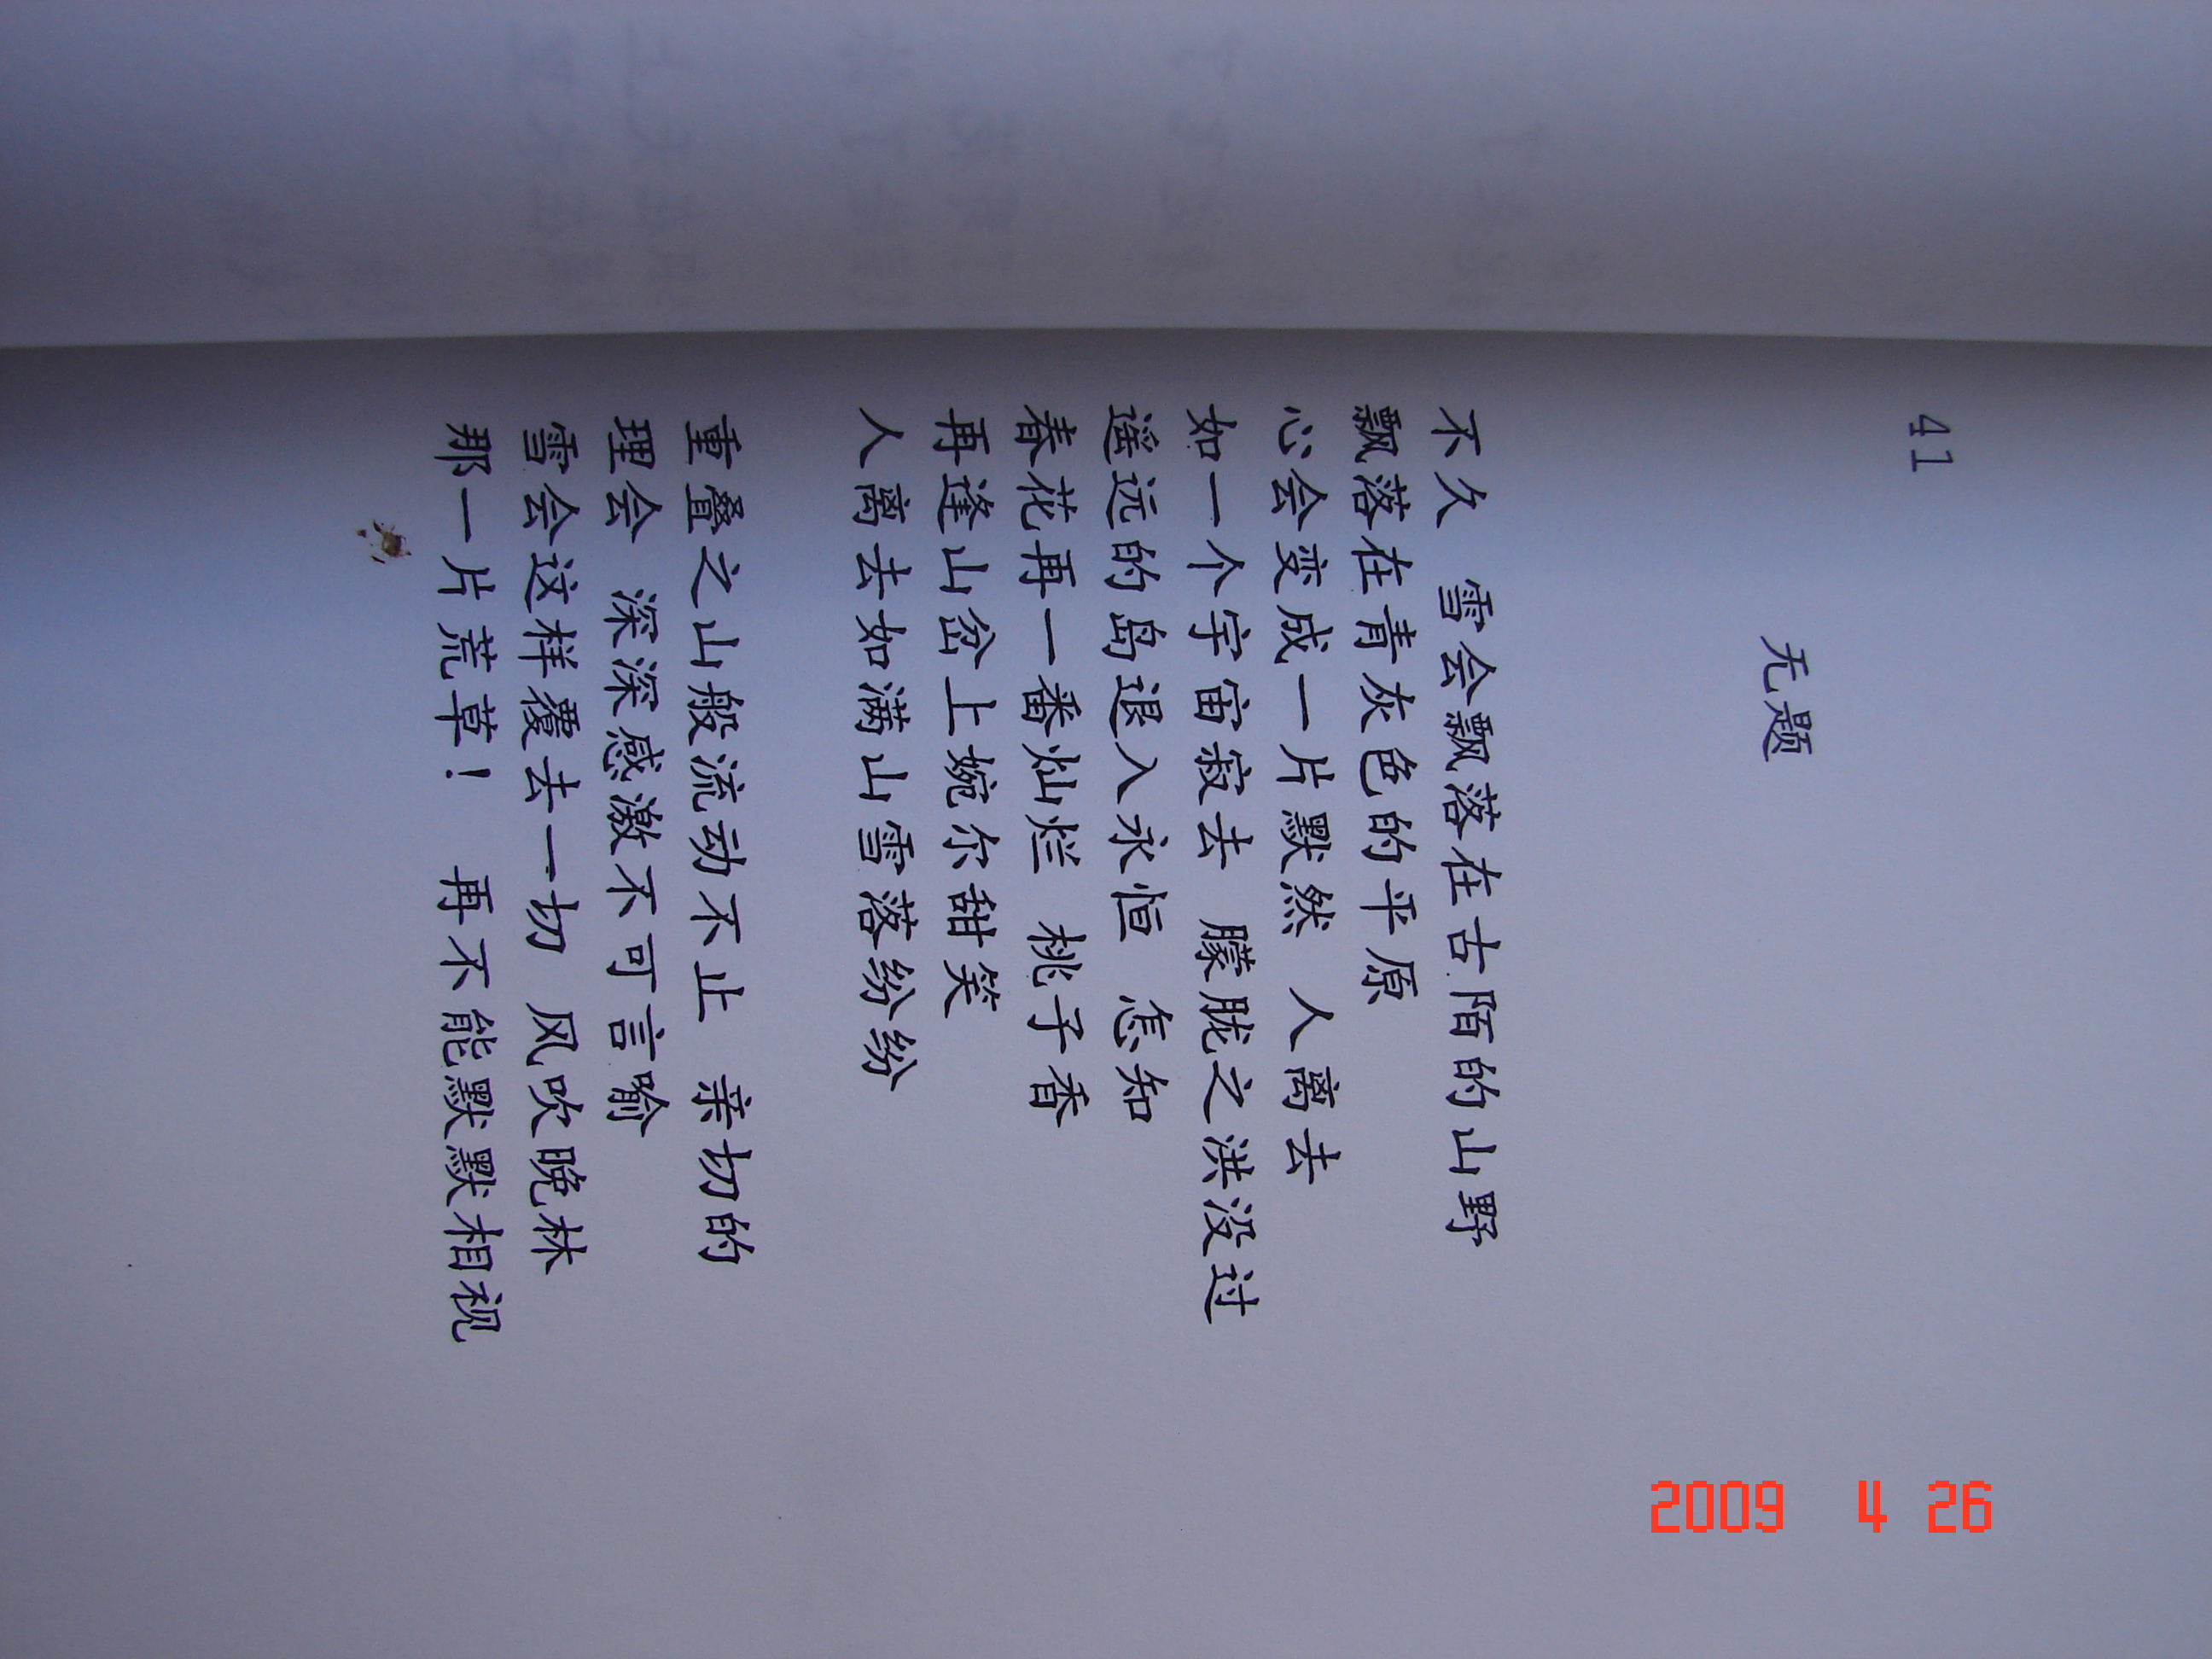 41
无题
不久 雪会飘落在古陌的山野
飘落在青灰色的平原
心会变成一片默然 人离去
如一个宇宙寂去 朦胧之洪没过
遥远的岛退入永恒 怎知
春花再一番灿烂 桃子香
再逢山岔上婉尔甜笑
人离去如满山雪落纷纷
重叠之山般流动不止 亲切的
理会 深深感激不可言喻
雪会这样覆去一切 风吹晚林
那一片荒草! 再不能默默相视
2009 4 26